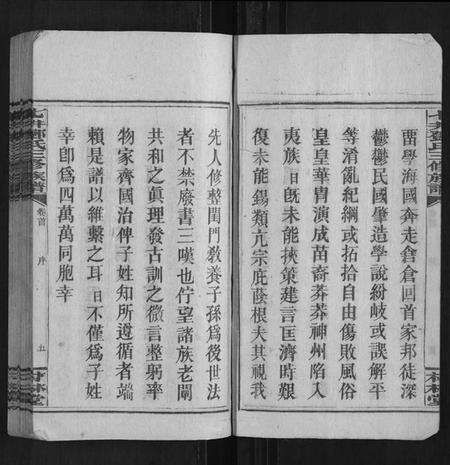 畱學海國奔走倉倉回首家邦徒深
鬱鬱民國肇造學說紛岐或誤解平
等淆亂紀綱或拈拾自由傷敗風俗
皇皇華冑演成苗裔莽莽神州陷入
夷族日旣未能挾策建言匡濟時艱
復未能錫類亢宗庇蔭根夫其視我
先人修整閨門敎養子孫爲後世法
者不禁廢書三嘆也佇望諸族老闡
共和之眞理發古訓之微言整躬率
物家齊國治俾子姓知所遵循者端
賴是譜以維繫之耳日不僅爲子姓
幸卽爲四萬萬同胞幸
七井鄧氏三修族譜
卷首
序
五